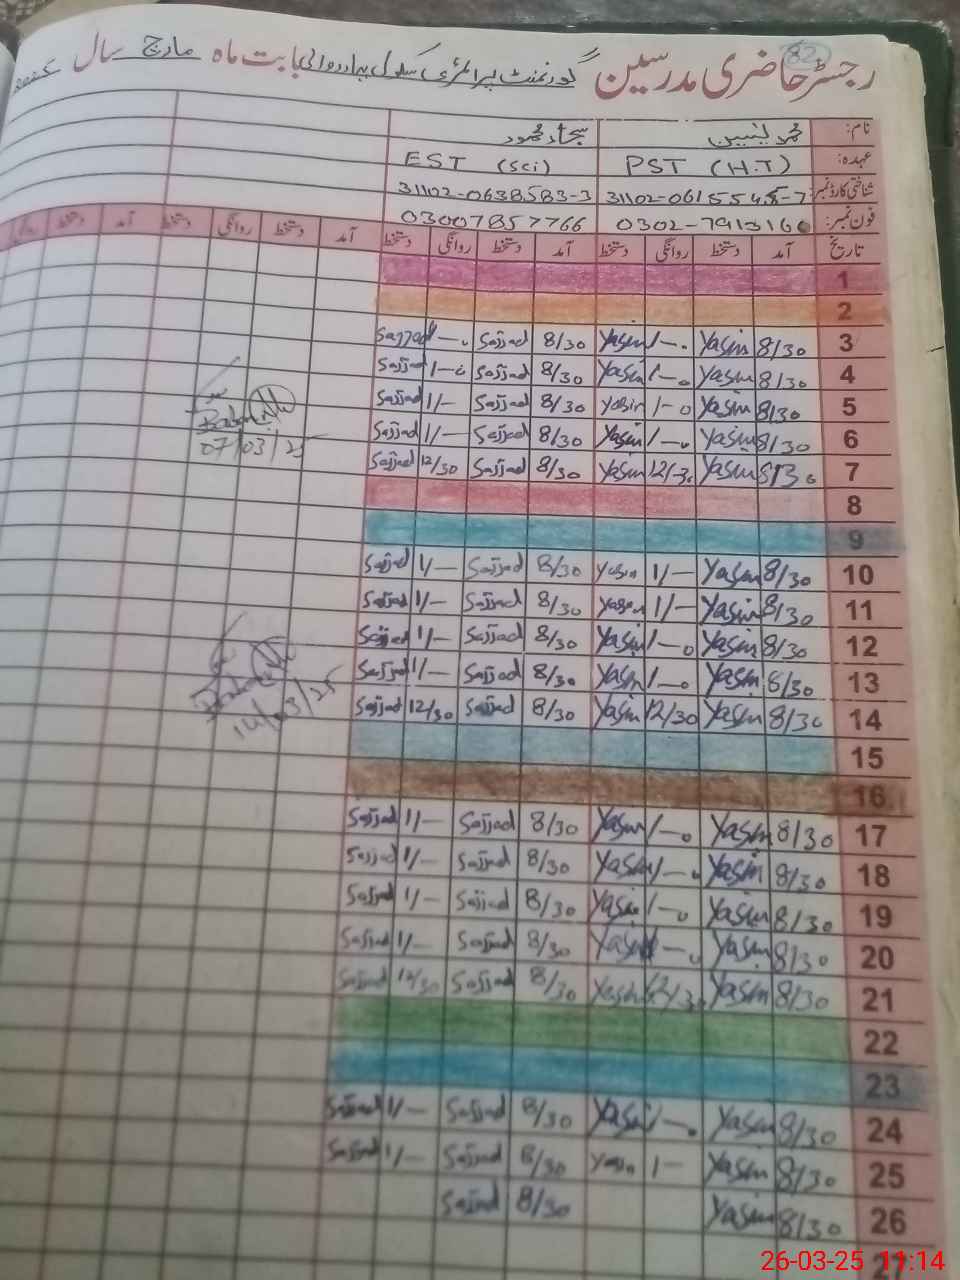 82
رجسٹر حاضری مدرسین گورنمنٹ پرائمری سکول بہادر والی بابت ماہ مارچ سال
نام: محمد یٰسین سجاد محمود
عہدہ: PST (H.T) EST (Sci)
شناختی کارڈ نمبر: 31102-0615545-7 31102-0638583-3
فون نمبر: 0302-7913160 03007857766
تاریخ آمد دستخط روانگی دستخط آمد دستخط روانگی دستخط آمد دستخط روانگی دستخط آمد دستخط روانگی
1
2
3 8/30 Yasin 1-0 Yasin 8/30 Sajjad 1-0 Sajjad
4 8/30 Yasin 1-0 Yasin 8/30 Sajjad 1-0 Sajjad
5 8/30 Yasin 1-0 Yasin 8/30 Sajjad 1/- Sajjad
6 8/30 Yasin 1-0 Yasin 8/30 Sajjad 1/- Sajjad
7 8/30 Yasin 12/30 Yasin 8/30 Sajjad 12/30 Sajjad
07/03/25
8
9
10 8/30 Yasin 1/- Yasin 8/30 Sajjad 1/- Sajjad
11 8/30 Yasin 1/- Yasin 8/30 Sajjad 1/- Sajjad
12 8/30 Yasin 1-0 Yasin 8/30 Sajjad 1/- Sajjad
13 8/30 Yasin 1-0 Yasin 8/30 Sajjad 1/- Sajjad
14 8/30 Yasin 12/30 Yasin 8/30 Sajjad 12/30 Sajjad
14/03/25
15
16
17 8/30 Yasin 1-0 Yasin 8/30 Sajjad 1/- Sajjad
18 8/30 Yasin 1-0 Yasin 8/30 Sajjad 1/- Sajjad
19 8/30 Yasin 1-0 Yasin 8/30 Sajjad 1/- Sajjad
20 8/30 Yasin 1-0 Yasin 8/30 Sajjad 1/- Sajjad
21 8/30 Yasin 12/30 Yasin 8/30 Sajjad 12/30 Sajjad
22
23
24 8/30 Yasin 1-0 Yasin 8/30 Sajjad 1/- Sajjad
25 8/30 Yasin 1- Yasin 8/30 Sajjad 1/- Sajjad
26 8/30 Yasin 8/30 Sajjad
27
26-03-25 11:14